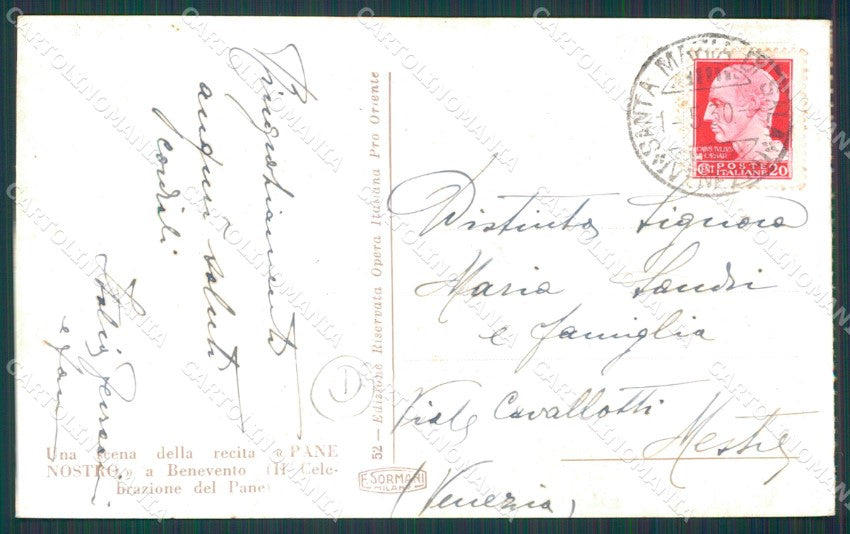 Ringraziamenti
auguri saluti
cordiali
e fam
Una scena della recita «PANE
NOSTRO» a Benevento (II Cele-
brazione del Pane)
52 — Edizione Riservata Opera Italiana Pro Oriente
E. SORMANI
MILANO
1
SANTA MARIA
POSTE
ITALIANE 20
Distinta Signora
Maria Sandri
e famiglia
Viale Cavallotti
Mestre
(Venezia)
CARTOLINOMANIA